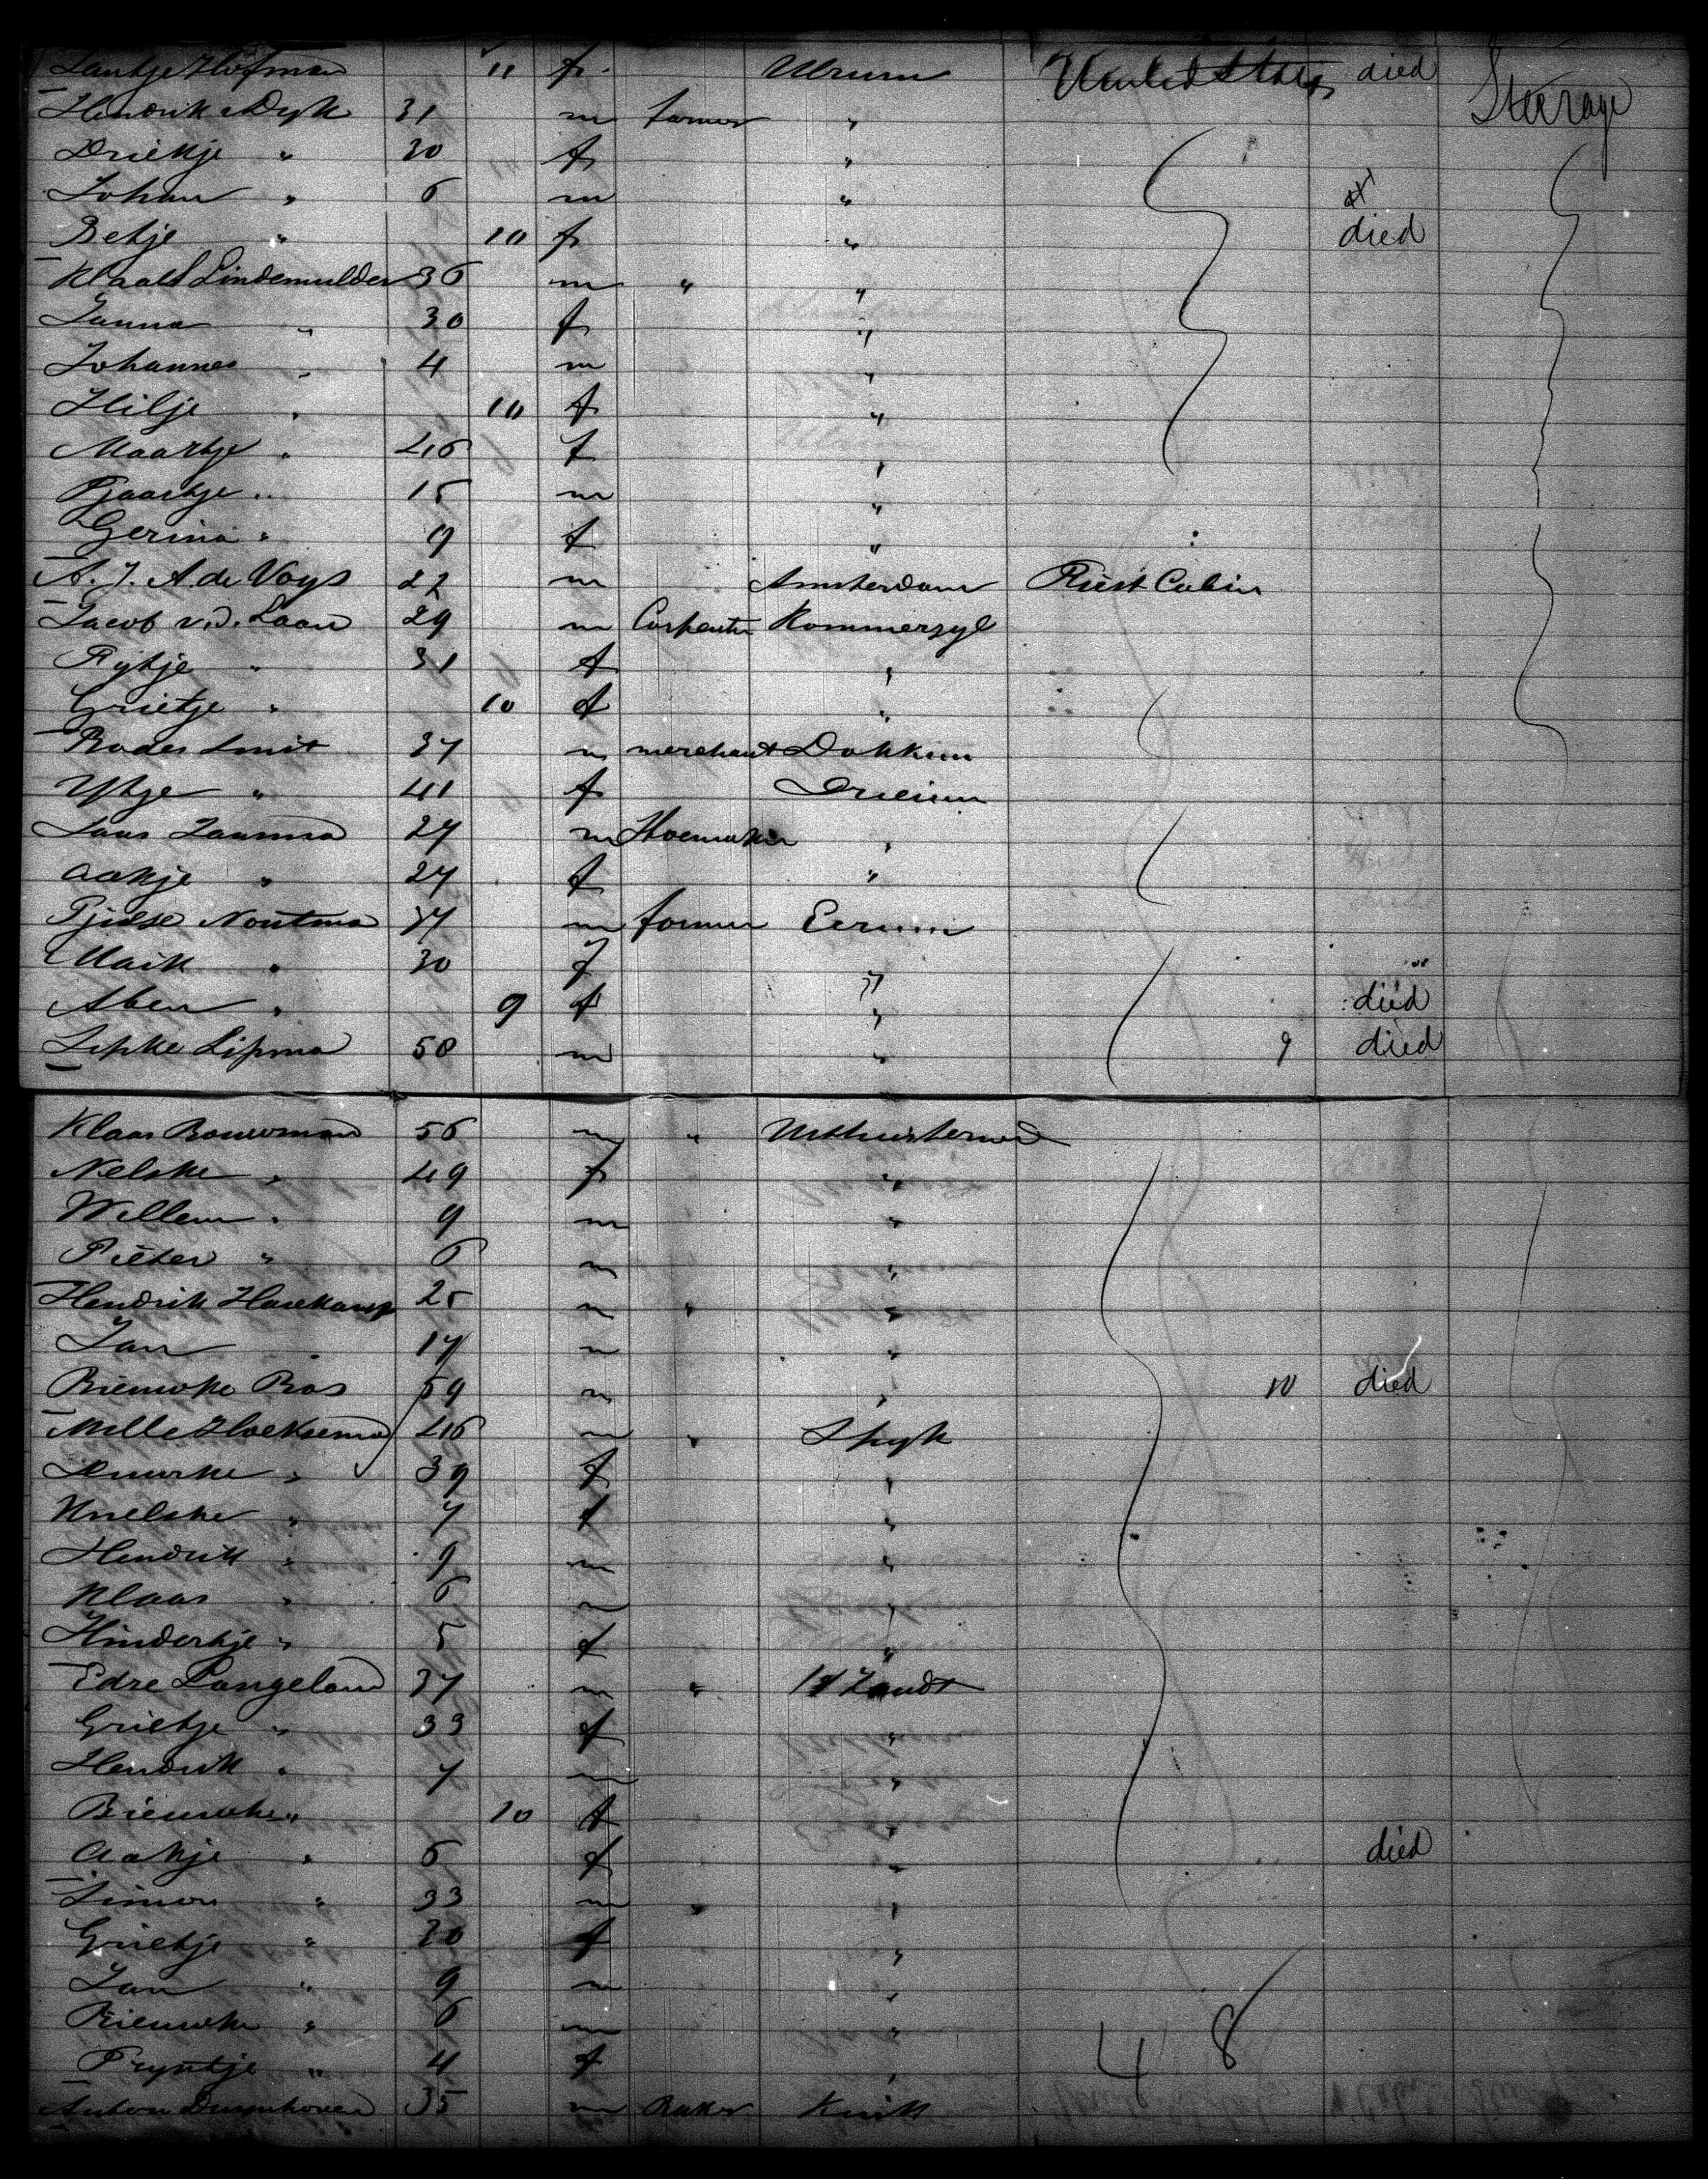 Lantje Hofman 11 f Ulrum United States died Steerage
Hendrik Dyk 31 m farmer "
Driekje " 30 f "
Johan " 6 m "
Betje " 10 f " died
Klaas Lindemulder 36 m " "
Janna " 30 f "
Johannes " 4 m "
Hilje " 10 f "
Maartje " 46 f "
Tjaartje " 15 m "
Gerina " 9 f "
A. J. A. de Voys 22 m Amsterdam First Cabin
Jacob v.d. Laan 29 m Carpenter Kommerzyl
Fytje " 31 f "
Grietje " 10 f "
Smit 37 m merchant Dokkum
Ytje " 41 f Driesum
27 m Shoemaker "
Aakje " 27 f "
Noutma 37 m farmer
Maik " 30 f "
Aben " 9 f " died
Lipma 50 m " 9 died
Klaas Bouwman 56 m " Uithuistermeed
Nelske " 49 f "
Willem " 9 m "
Pieter " 6 m "
Hendrik Havekamp 25 m " "
Jan " 17 m "
Bieuwke Bos 59 m " 10 died
Melle Hoeksema 46 m " Spyk
Duurke " 39 f "
Knelske " 7 f "
Hendrik " 9 m "
Klaas " 6 m "
Hindertje " 5 f "
Edze Langeland 37 m " 't Zandt
Grietje " 33 f "
Hendrik " 7 m "
Bieuwke " 10 f "
Aakje " 6 f " died
Simon " 33 m " "
Grietje " 30 f "
Jan " 9 m "
Rieuwke " 6 m "
Tryntje " 4 f " 48
Anton Duynhoven 35 m Baker